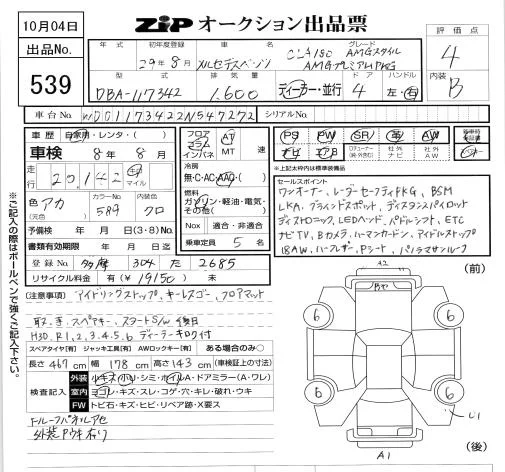 10月04日
ZiP オークション出品票
出品No.
539
年式 初年度登録 車名 グレード
29年8月 メルセデスベンツ CLA180 AMGスタイル
AMGプレミアムPKG
型式 排気量 ドア ハンドル
DBA-117342 1,600 ディーラー・並行 4 左・右
評価点
4
内装
B
車台No. WDD1173422N547272 シリアルNo.
車歴 自家用・レンタ・( )
車検 8年8月
走行 20,142 キロ マイル
色 アカ (元色) カラーNo. 589 内装色 クロ
予備検 年 月 日(3・8)No.
書類有効期限 年 月 日迄
登録No. 多摩 304 た 2685
リサイクル料金 有(¥19150) 未
フロア コラム インパネ AT MT 速
冷房
無・C・AC・AAC・( )
燃料
ガソリン・軽油・電気・その他( )
Nox 適合・非適合
乗車定員 5 名
PS PW SR 革 AW
ナビ TV
社外 ナビ 社外 AW
※上記太枠内は標準装備品
セールスポイント
ワンオーナー、レーダーセーフティPKG、BSM
LKA、ブラインドスポット、ディスタンスパイロット
ディストロニック、LEDヘッド、パドルシフト、ETC
ナビTV、Bカメラ、ハーマンカードン、アイドルストップ
18AW、ハーフレザー、Pシート、パノラマサンルーフ
(注意事項) アイドリングストップ、キーレスゴー、フロアマット
取、き、スペアキー、スタートS/W 後日
H30,R1,2,3,4,5,6 ディーラーキロク付
スペアタイヤ[有] ジャッキ工具[有] AWロックキー[有] ある場合のみ○
長さ 467cm 幅 178cm 高さ 143cm (車検証上の寸法)
検査記入
外装 小キズ・小リ・シミ・ホイルA・ドアミラー(A・ワレ)
室内 ヨゴレ・キズ・スレ・コゲ・穴・キレ・破れ・ウキ
FW トビ石・キズ・ヒビ・リペア跡・X要ス
ドルーフパネルアセ
外装ウキ有り
※ご記入の際はボールペンで強くご記入下さい。
A2
(前)
6
6
6
6
U1
A1
(後)